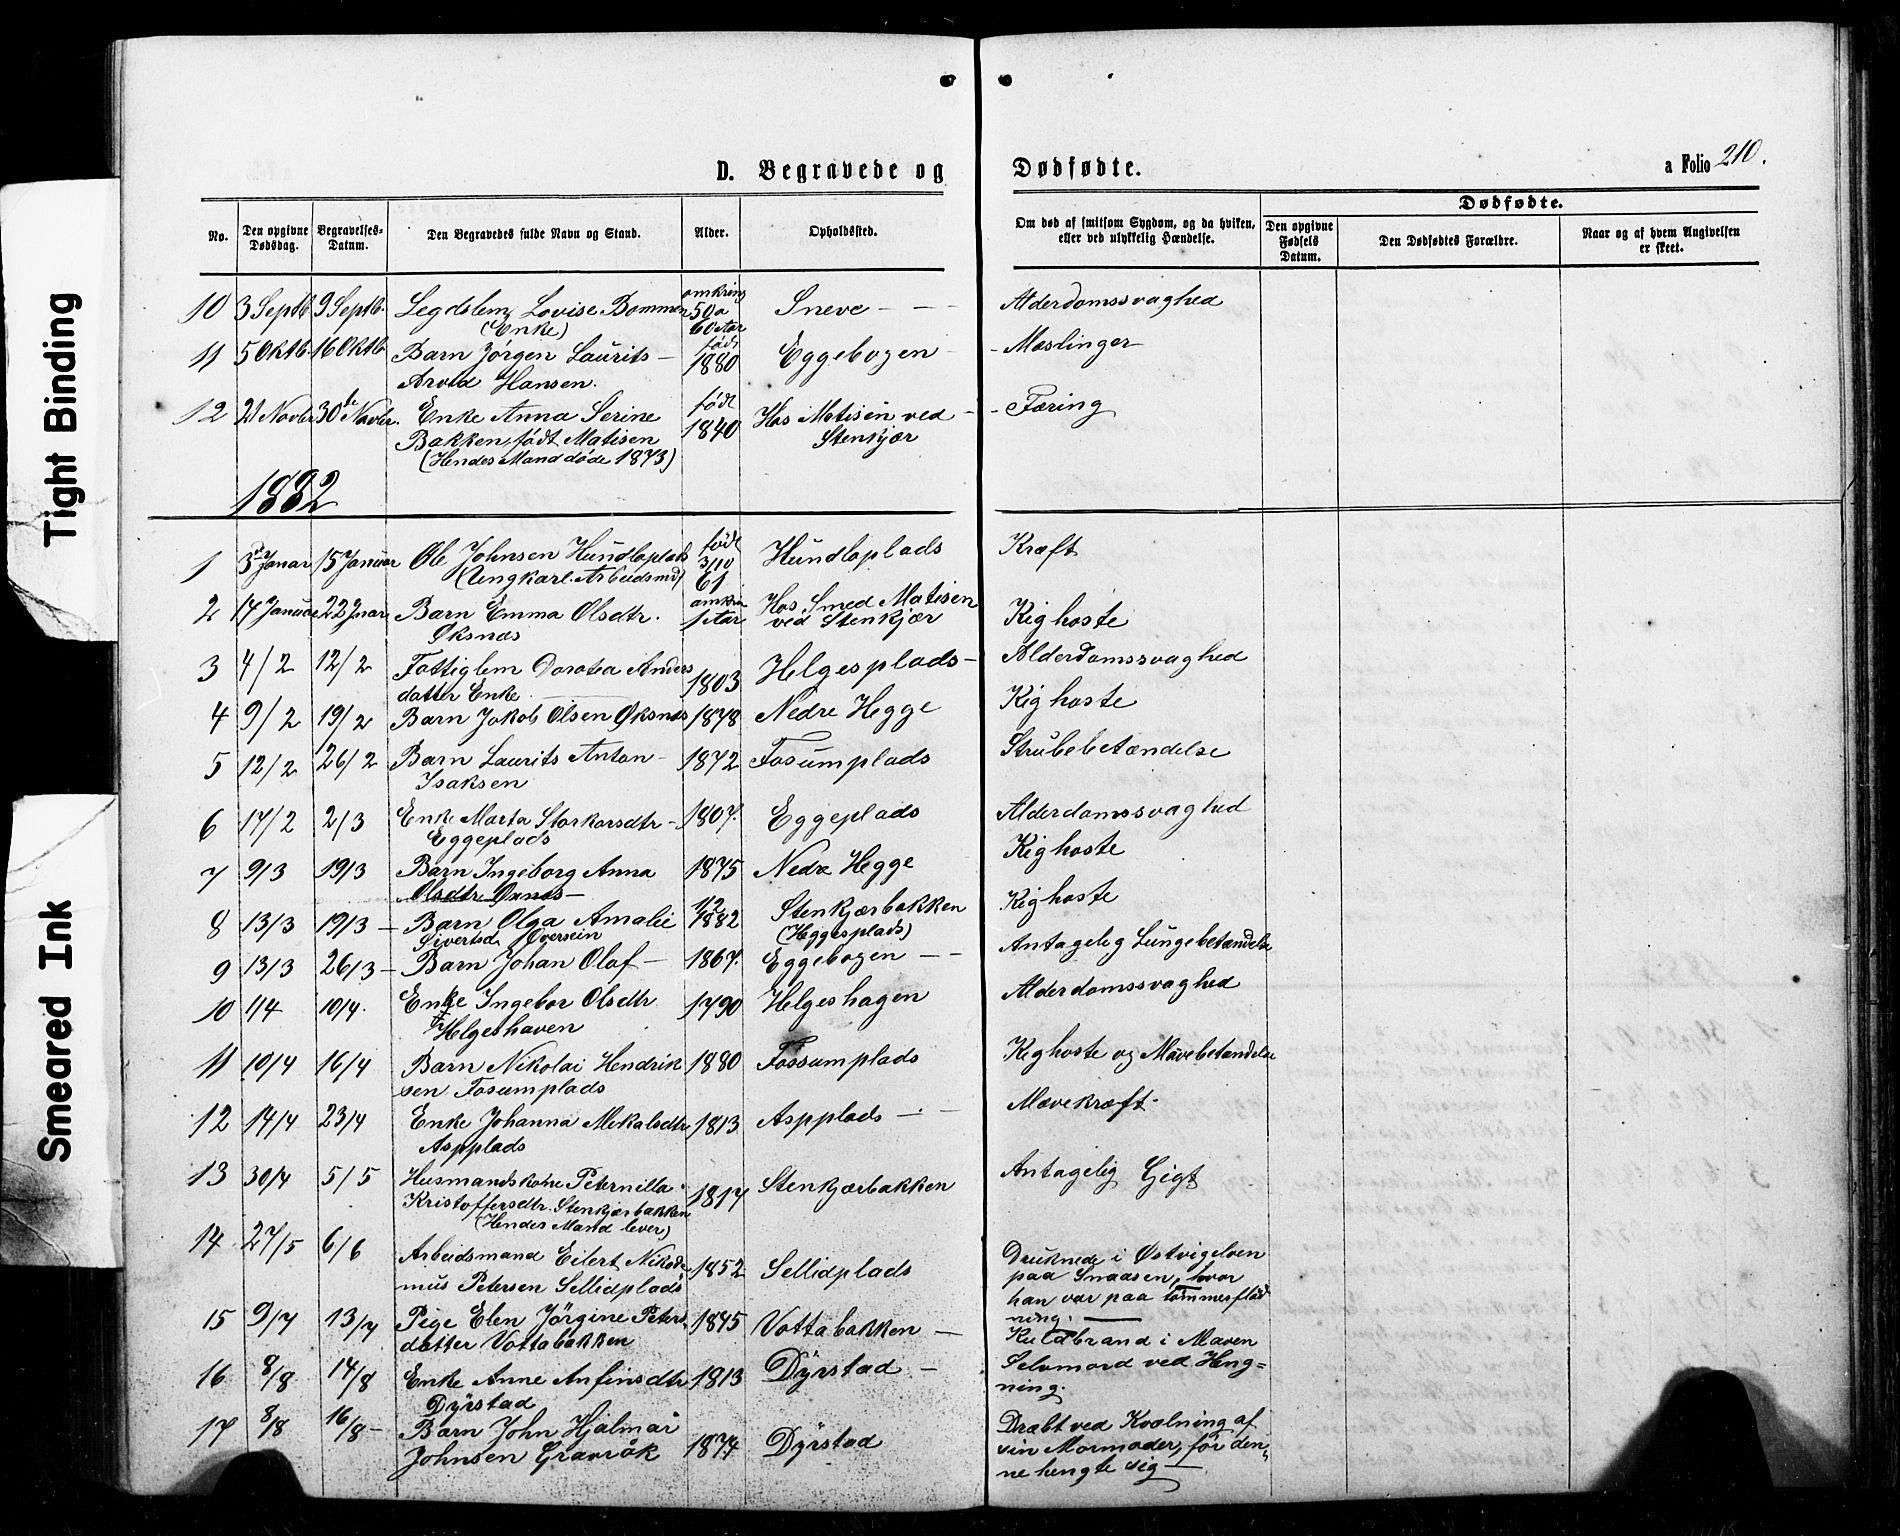 Tight Binding
Smeared Ink
D. Begravede og Dødfødte.
a Folio 210.
No.
Den opgivne Dødsdag.
Begravelses-Datum.
Den Begravedes fulde Navn og Stand.
Alder.
Opholdssted.
Om død af smitsom Sygdom, og da hvilken, eller ved ulykkelig Hændelse.
Dødfødte.
Den opgivne Fødsels Datum.
Den Dødfødtes Forældre.
Naar og af hvem Angivelsen er skeet.
10 3 Septb. 9 Septb. Legdslem Lovise Bommen omkring Sneve - - Alderdomssvaghed
(Enke) 50 a
60 Aar
11 5 Oktb. 16 Oktb Barn Jørgen Laurits - født 1880 Eggebogen - - Mæslinger
Arvid Hansen.
12 21 Novbr 30te Novbr. Enke Anna Serine født Hos Matisen ved - - Tæring
Bakken, født Matisen 1840 Stenkjær
(Hendes Mand døde 1873)
1882
1 3 Janar 15 Januar Ole Johnsen Hundloplads født Hundloplads Kræft
(Ungkarl. Arbeidsmd) 3/10
61
2 14 Januar 22 Jnar Barn Emma Olsdtr. omkrin Hos Smed Matisen Kighoste
Øksnæs 1 Aar ved Stenkjær
3 4/2 12/2 Fattiglem Dorotea Anders 1803 Helgesplads - Alderdomssvaghed
datter Enke
4 9/2 19/2 Barn Jakob Olsen Øksnæs 1878 Nedre Hegge Kighoste
5 12/2 26/2 Barn Laurits Anton - 1872 Fosumplads Strubebetændelse
Isaksen
6 17/2 2/3 Enke Marta Storkarsdtr - 1807. Eggeplads Alderdomssvaghed
Eggeplads
7 9/3 19/3 Barn Ingeborg Anna 1875 Nedre Hegge Kighoste
Olsdtr Øxnæs -
8 13/3 19/3 - Barn Olga Amalie 1/2 1882 Stenkjærbakken Kighoste
Sivertsd. (Heggesplads)
9 13/3 26/3 - Barn Johan Olaf - 1867. Eggebogen - - Antagelig Lungebetændelse
10 1/4 10/4. Enke Ingebor Olsdtr 1790 Helgeshagen Alderdomssvaghed
Helgeshaven
11 10/4 16/4 Barn Nikolai Hendrik 1880 Fossumplads Kighoste og Mavebetændelse
sen Fosumplads
12 14/4 23/4 Enke Johanna Mikalsdtr 1813 Aspplads - - Mavekræft
Aspplads
13 30/4 5/5 Husmandskone Peternilla 1817 Stenkjærbakken Antagelig Gigt
Kristoffersdtr. Stenkjærbakken
(Hendes Mand lever)
14 27/5 6/6 Arbeidsmand Eilert Nikode 1852 Sellidplads Druknede i Østvigelven
mus Petersen Sellidplads paa Snaasen, hvor
han var paa tømmerflød
ning.
15 9/7 13/7 Pige Elen Jörgine Peters 1845 Vottabakken - Kuldbrand i Maven
datter Vottabakken
16 8/8 14/8 Enke Anne Anfinsdtr 1813 Dÿrstad - Selvmord ved Hæng=
Dÿrstad ning.
17 8/8 16/8 - Barn John Hjalmar 1874 Dÿrstad Dræbt ved Kvælning af
Johnsen Gravråk sin Mormoder, før den-
ne hengte sig -